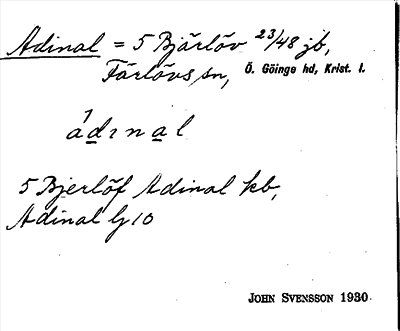 Adinal = 5 Bjärlöv 23/48 jb,
Färlövs sn, Ö. Göinge hd, Krist. l.
ádınal
5 Bjerlöf Adinal kb,
Adinal lj 10
JOHN SVENSSON 1930